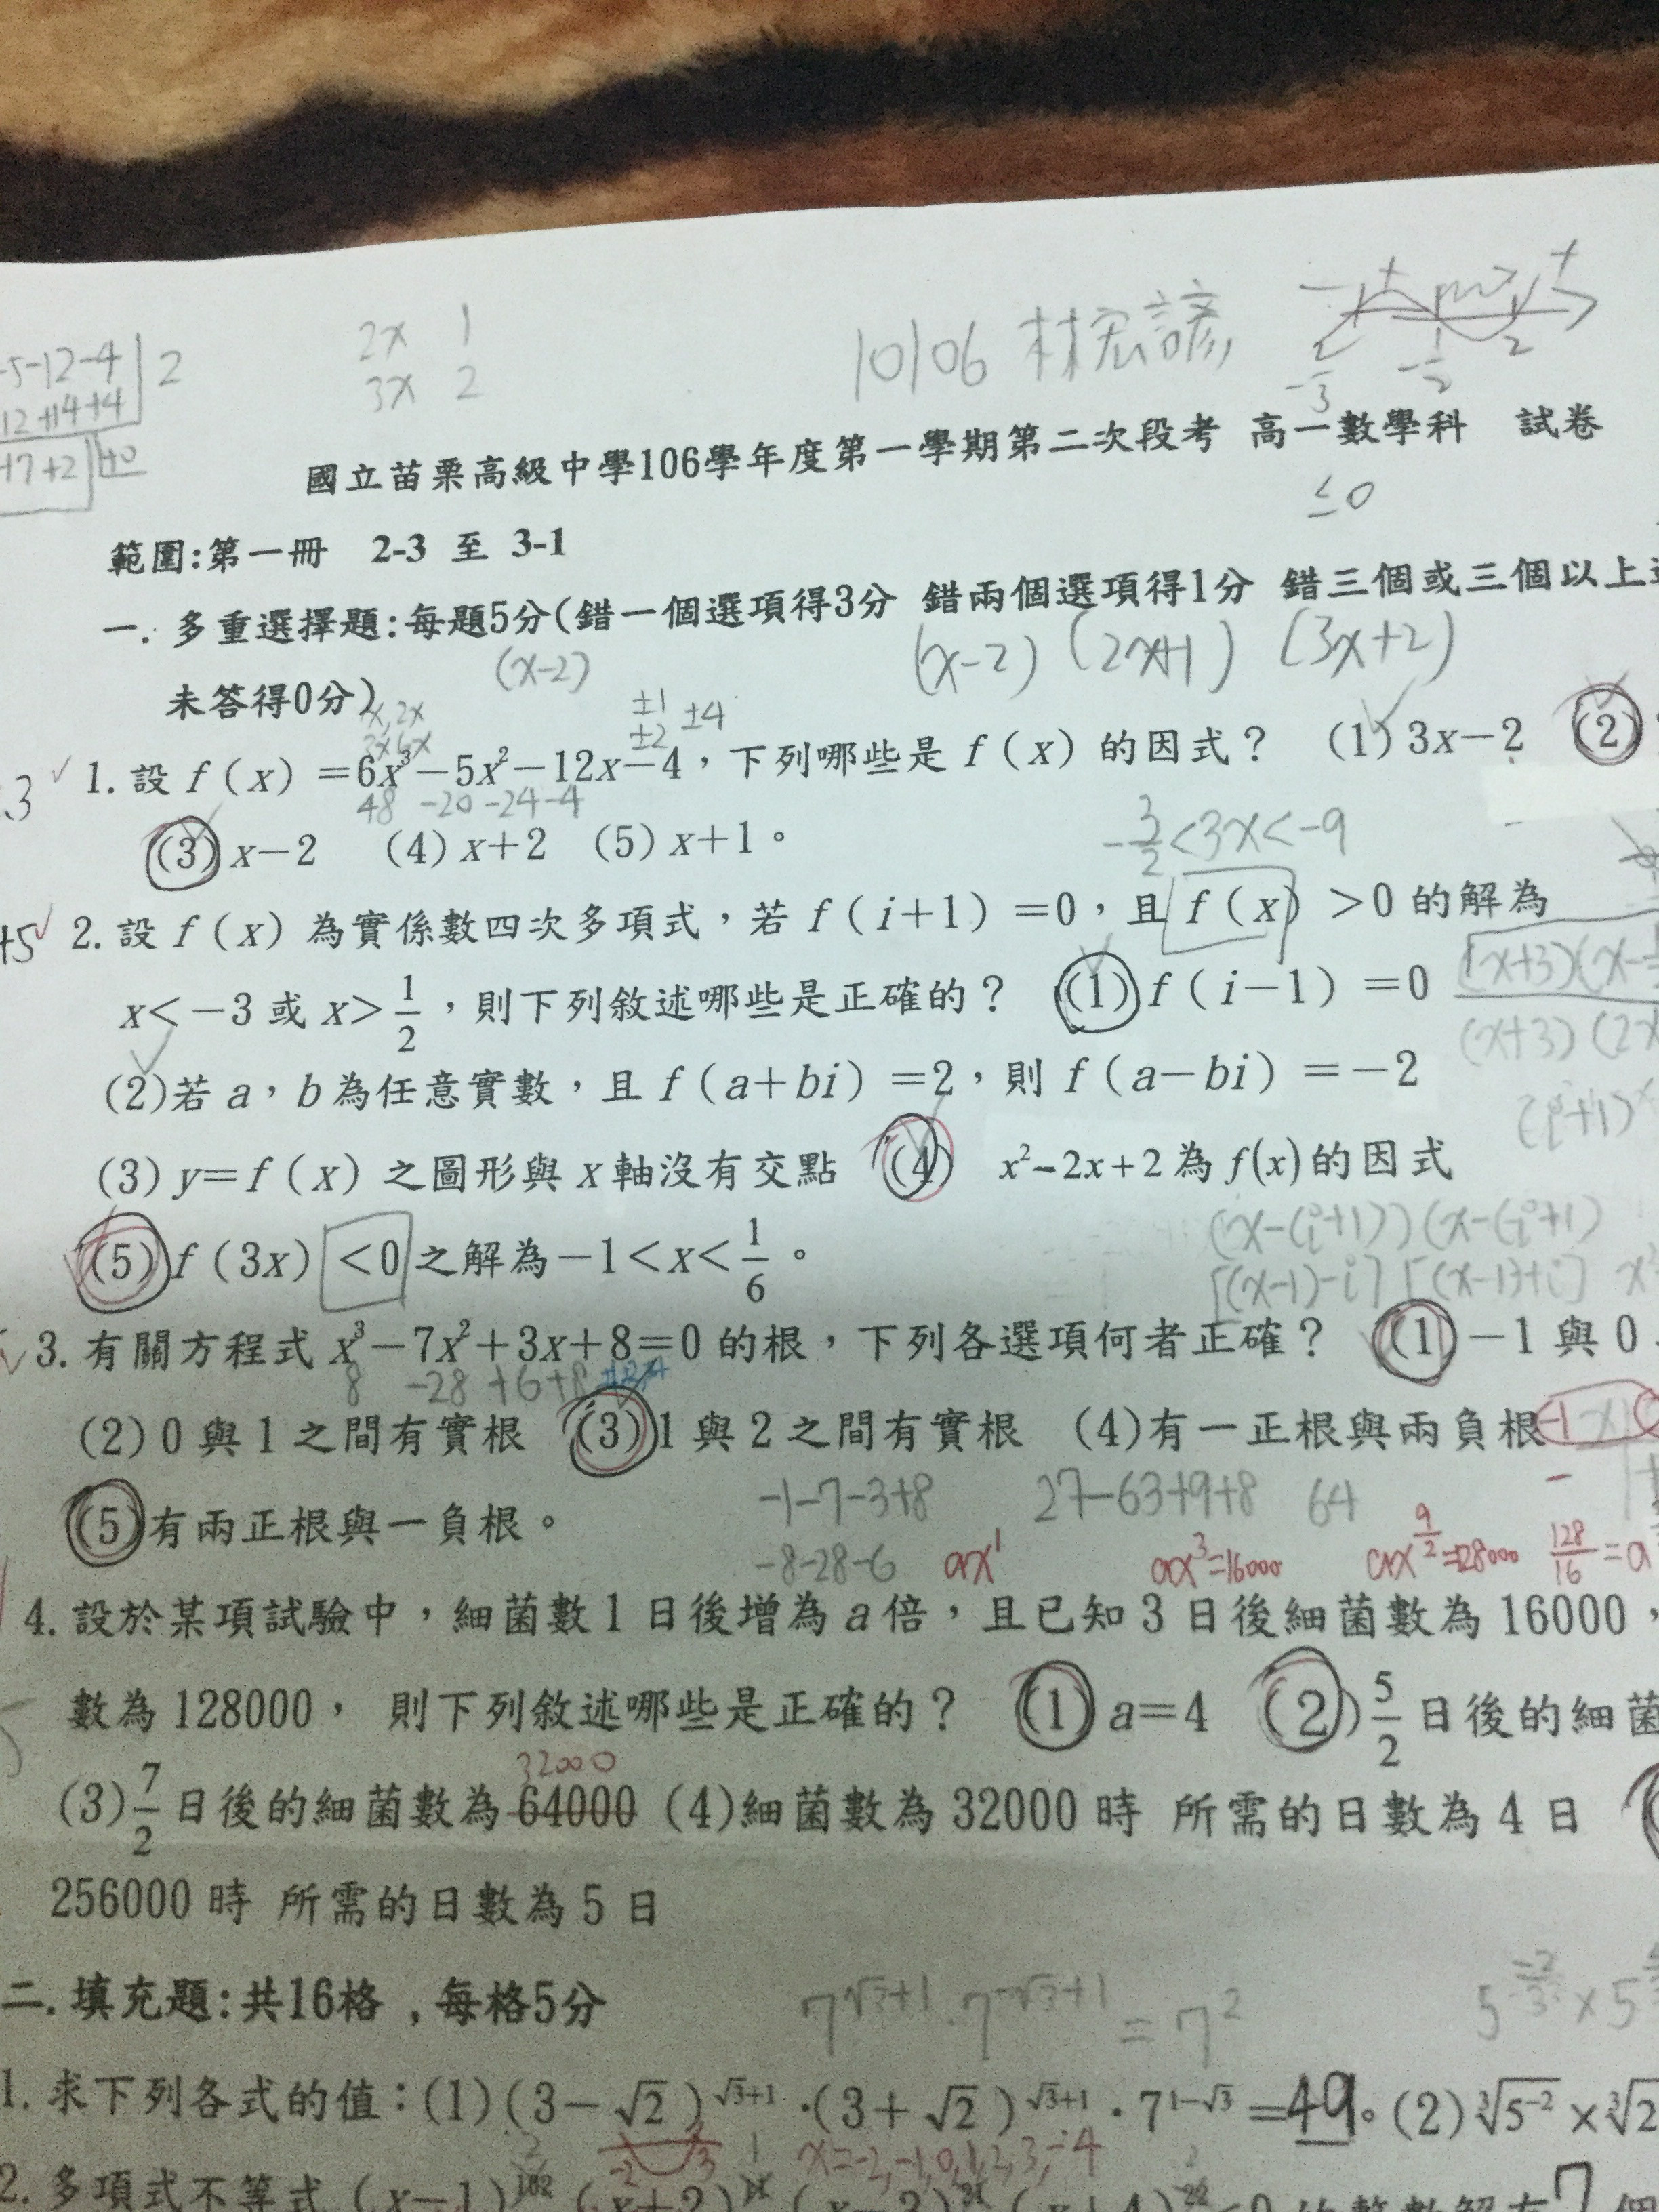 -5-12-4 2
12+14+4
+7+2 +0
2x 1
3x 2
10106 林宏諺
- + +
-2/3 -1/2 2
國立苗栗高級中學106學年度第一學期第二次段考 高一數學科 試卷
≤0
範圍:第一冊 2-3 至 3-1
一. 多重選擇題:每題5分(錯一個選項得3分 錯兩個選項得1分 錯三個或三個以上
(x-2) (x-2) (2x+1) (3x+2)
未答得0分)
x,2x ±1 ±4
3x6x ±2
1. 設 f(x)=6x³-5x²-12x-4,下列哪些是 f(x) 的因式? (1) 3x-2 (2)
48 -20 -24-4
(3) x-2 (4) x+2 (5) x+1。
-3/2<3x<-9
+5 2. 設 f(x) 為實係數四次多項式,若 f(i+1)=0,且 f(x)>0 的解為
x<-3 或 x>1/2,則下列敘述哪些是正確的? (1) f(i-1)=0
(x+3)(2x
(2)若 a,b 為任意實數,且 f(a+bi)=2,則 f(a-bi)=-2
(3) y=f(x) 之圖形與 x 軸沒有交點 (4) x²-2x+2 為 f(x) 的因式
(x-(i+1))(x-(-i+1)
[(x-1)-i][(x-1)+i]
(5) f(3x)<0 之解為-1<x<1/6。
3. 有關方程式 x³-7x²+3x+8=0 的根,下列各選項何者正確? (1) -1 與 0
8 -28 +6+8
(2) 0 與 1 之間有實根 (3) 1 與 2 之間有實根 (4)有一正根與兩負根
-1-7-3+8 27-63+9+8 64
(5) 有兩正根與一負根。
-8-28-6 ax¹ ax³=16000 ax^(9/2)=128000 128/16=a
4. 設於某項試驗中,細菌數 1 日後增為 a 倍,且已知 3 日後細菌數為 16000,
數為 128000, 則下列敘述哪些是正確的? (1) a=4 (2) 5/2 日後的細菌
32000
(3) 7/2 日後的細菌數為 64000 (4)細菌數為 32000 時 所需的日數為 4 日
256000 時 所需的日數為 5 日
二. 填充題:共16格 ,每格5分
7^(√3+1)·7^(-√3+1)=7²
1. 求下列各式的值:(1)(3-√2)^(√3+1)·(3+√2)^(√3+1)·7^(1-√3)=49。(2)³√5⁻²×³√2
x=-2,-1,0,1,2,3,-4
2. 多項式不等式 (x-1) (x+2) (x-3) (x+4)